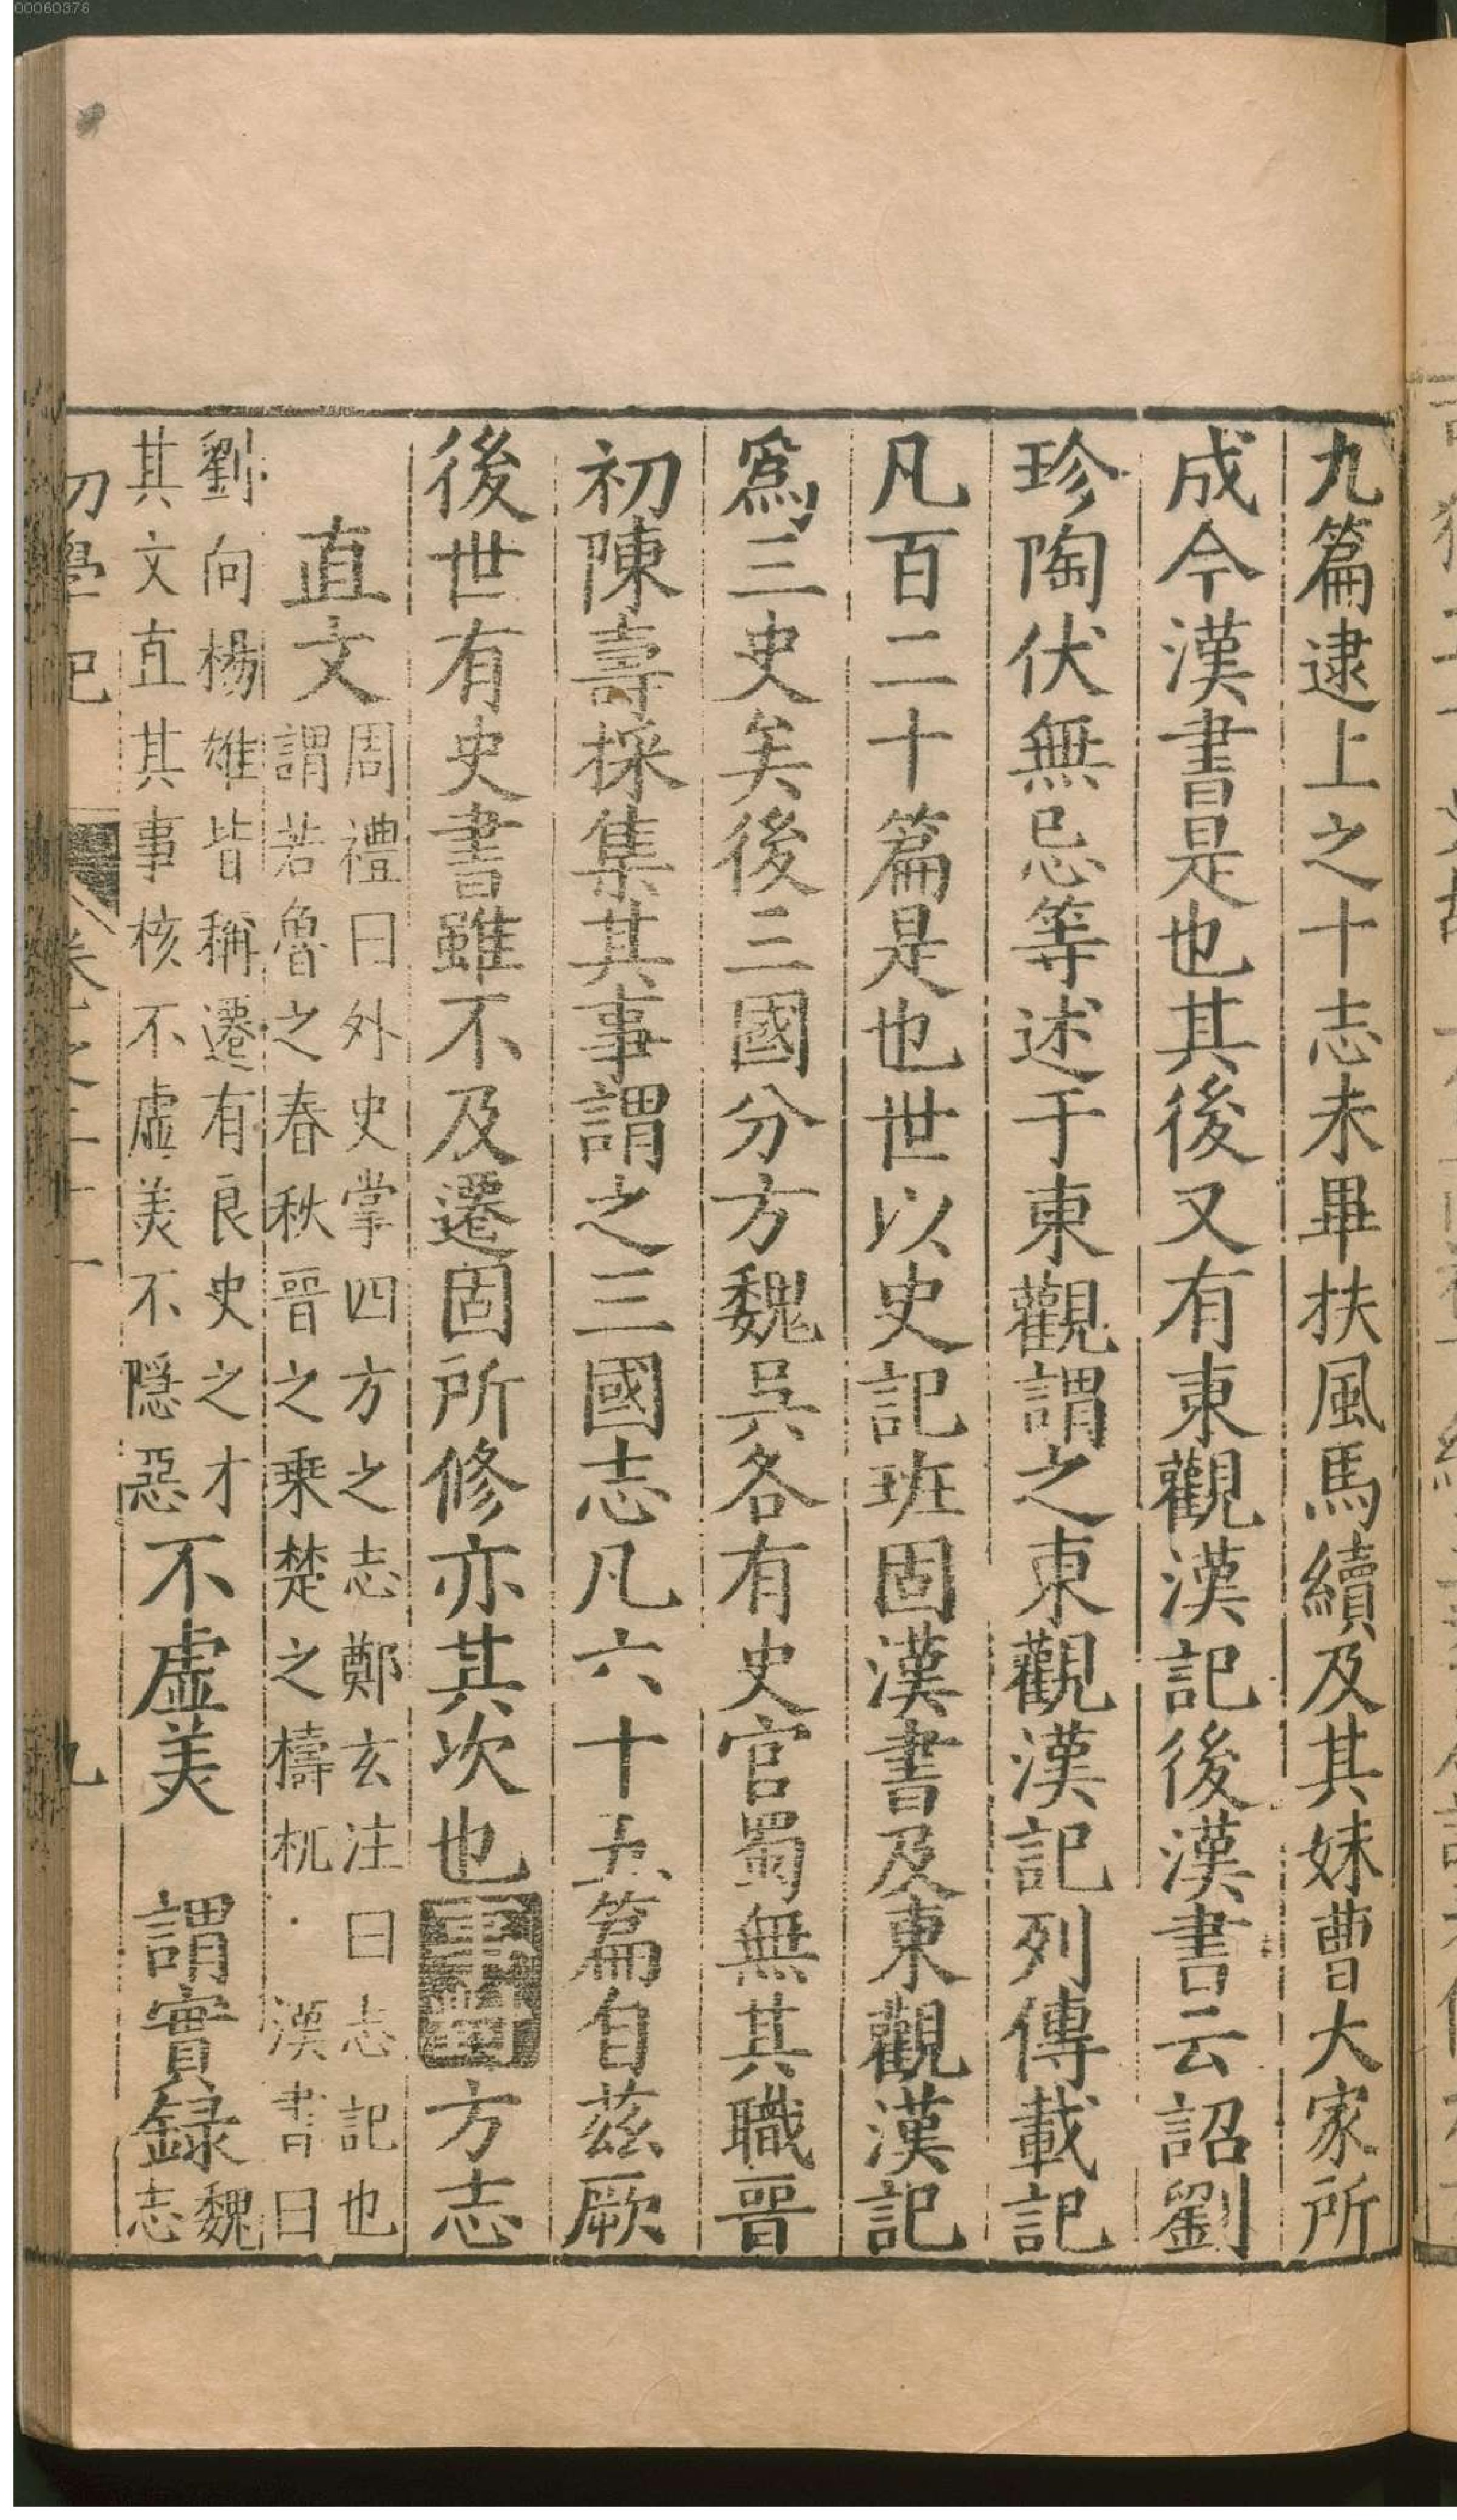 00060378
九篇逮上之十志未畢扶風馬續及其妹曹大家所
成今漢書是也其後又有東觀漢記後漢書云詔劉
珍陶伏無忌等述于東觀謂之東觀漢記列傳載記
凡百二十篇是也世以史記班固漢書及東觀漢記
爲三史矣後三國分方魏吳各有史官蜀無其職晉
初陳壽採集其事謂之三國志凡六十五篇自茲厥
後世有史書雖不及遷固所修亦其次也事對方志
直文
周禮曰外史掌四方之志鄭玄注曰志記也
謂若魯之春秋晉之乗楚之檮杌漢書曰
劉向楊雄皆稱遷有良史之才
其文直其事核不虛美不隠惡
不虛美 謂實録
魏
志
初學記 卷之二十一 九